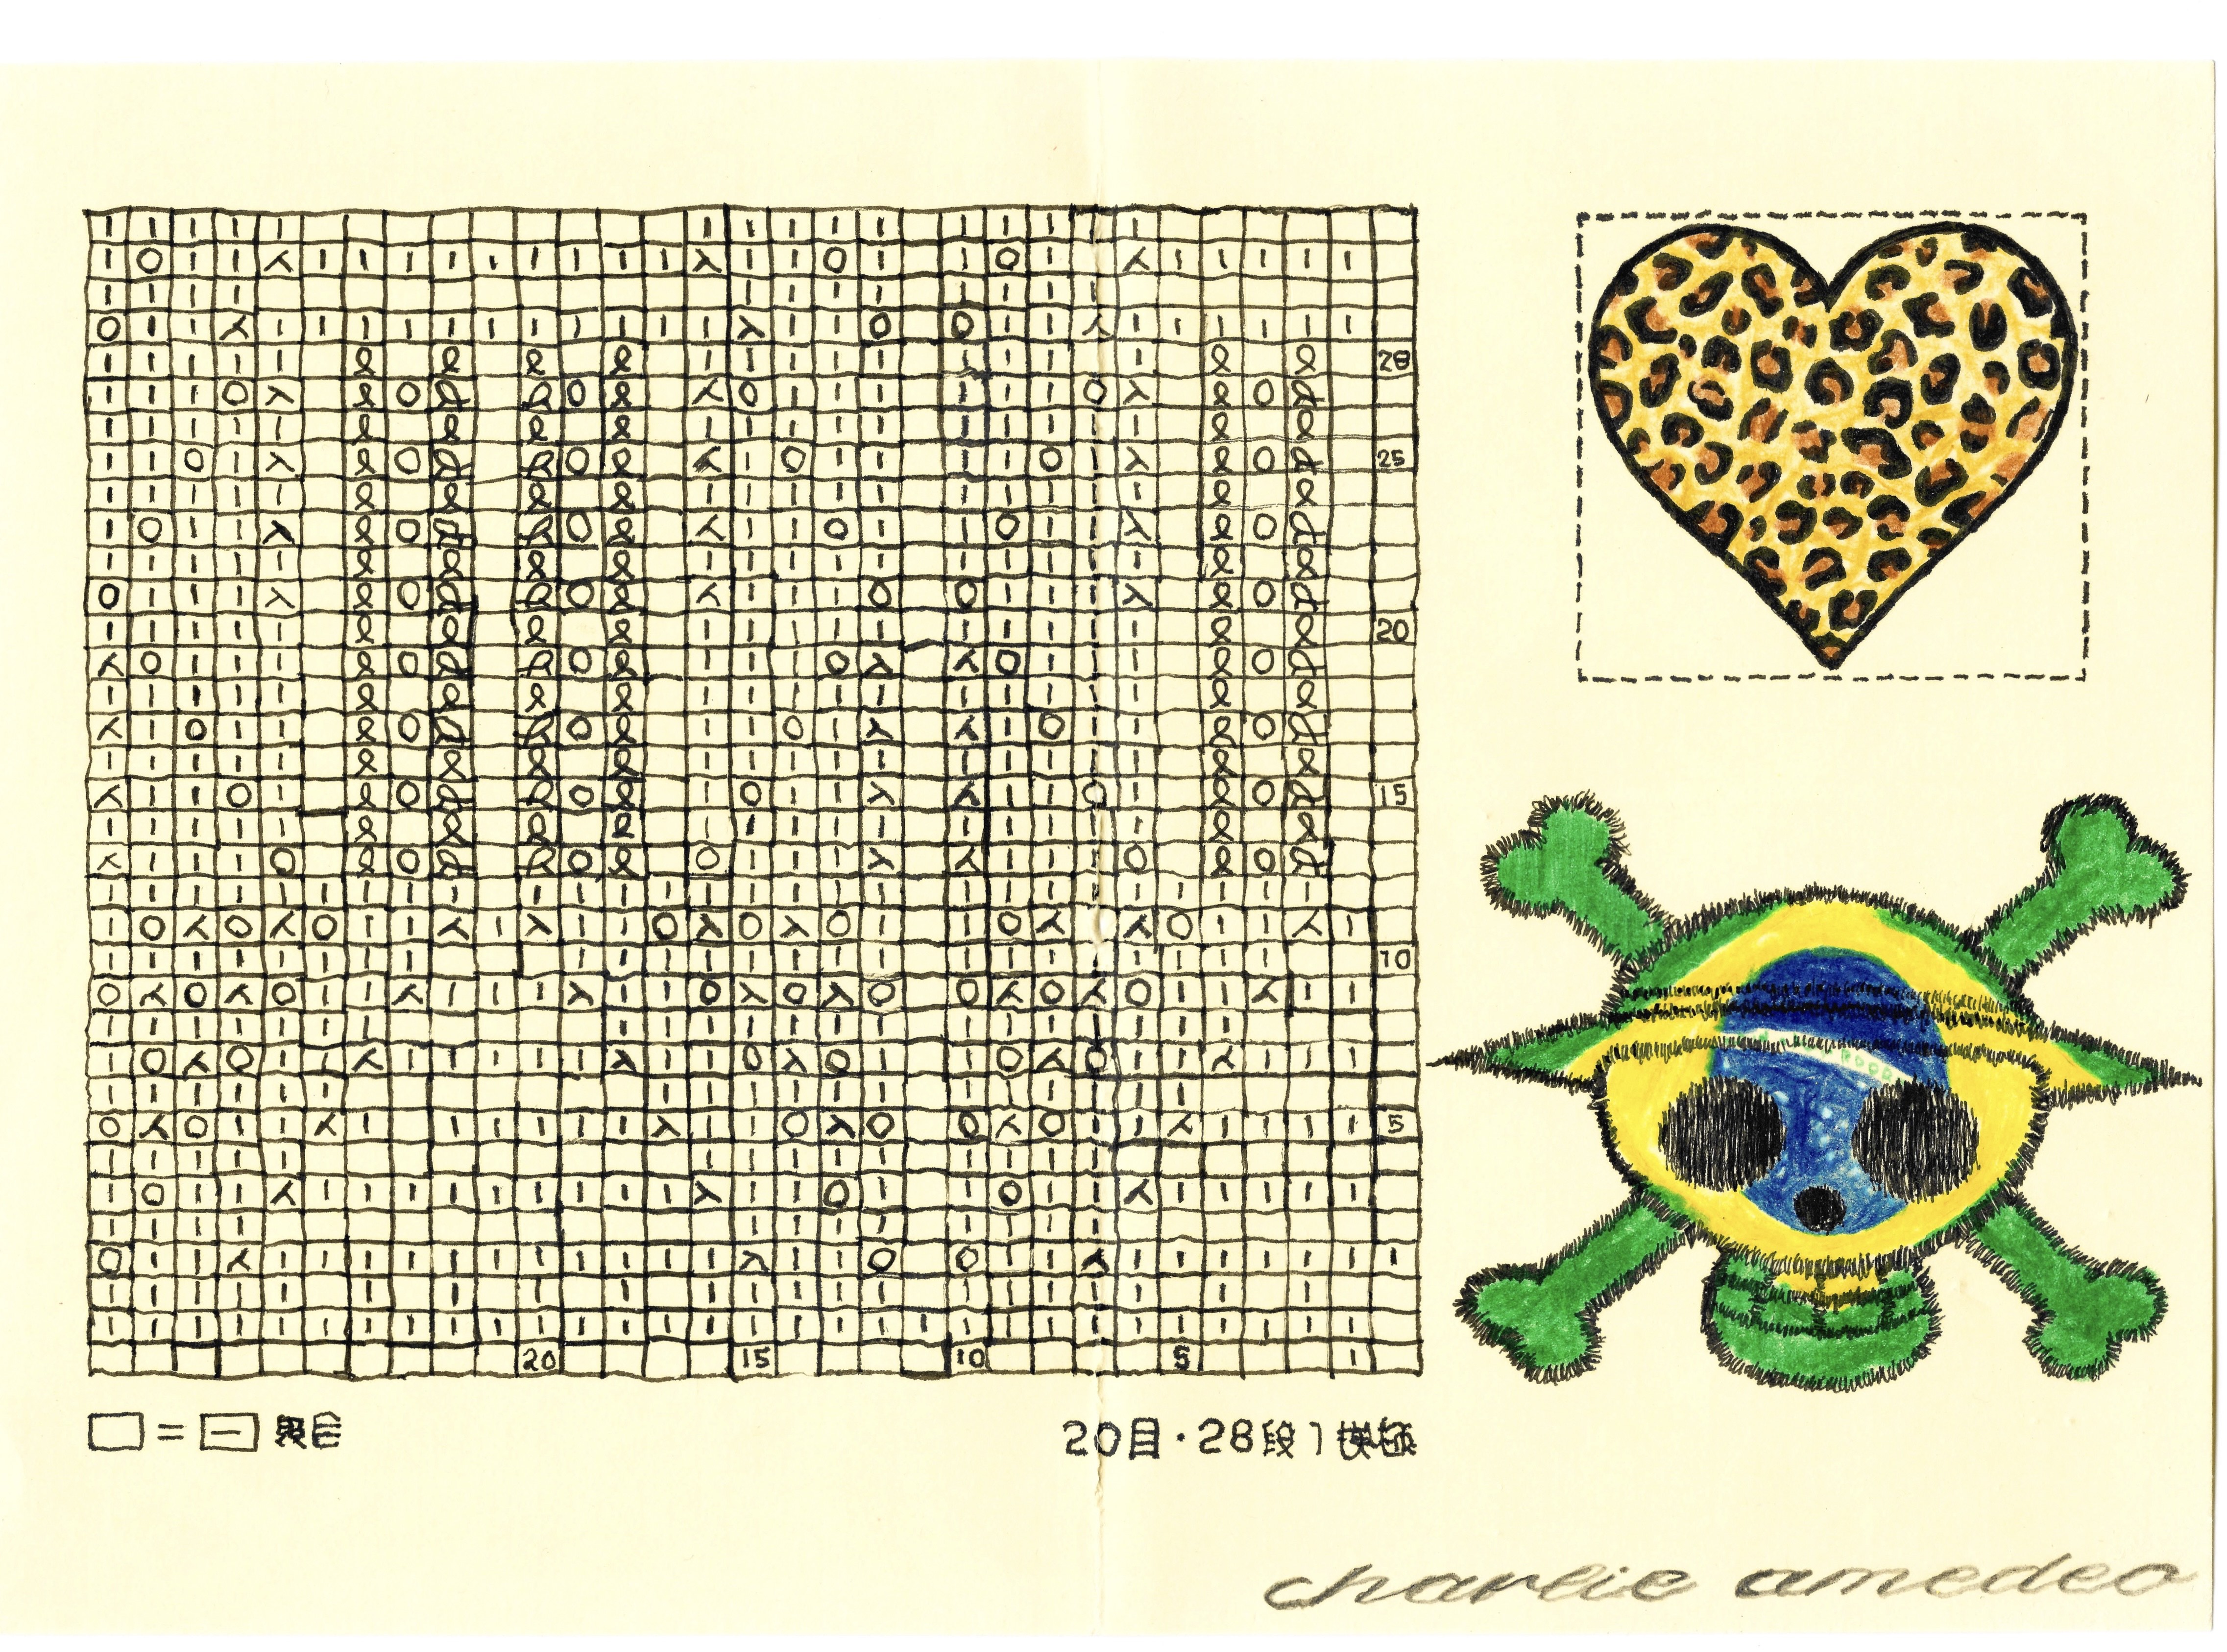 28
25
20
15
10
5
20 15 10 5 1
□=⊟
20目・28段1模様
charlie amedeo